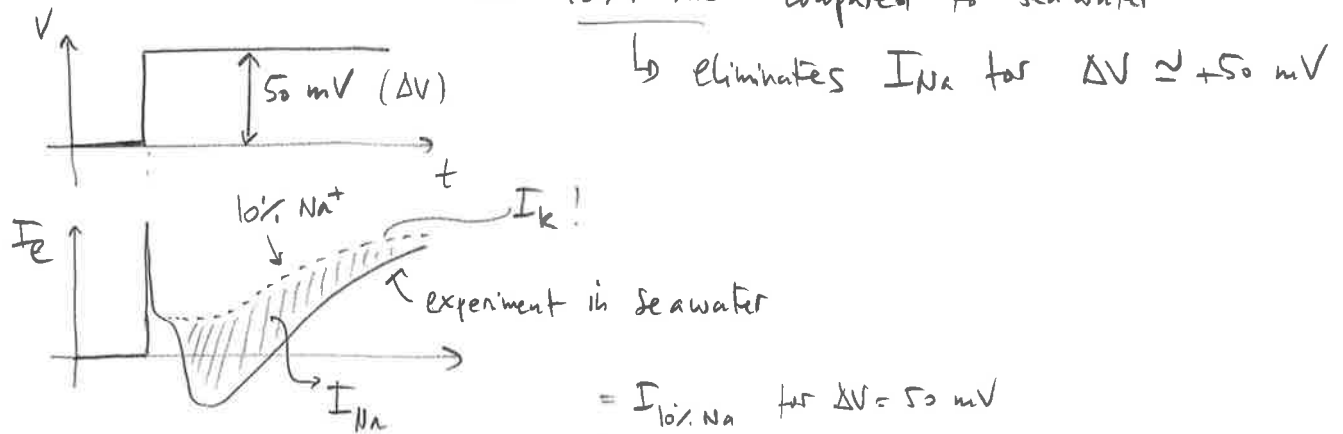 compared to seawater
V
↳ eliminates I_Na for ΔV ≃ +50 mV
50 mV (ΔV)
t
10% Na⁺
I_K !
I_e
experiment in seawater
I_Na
= I_10% Na for ΔV = 50 mV